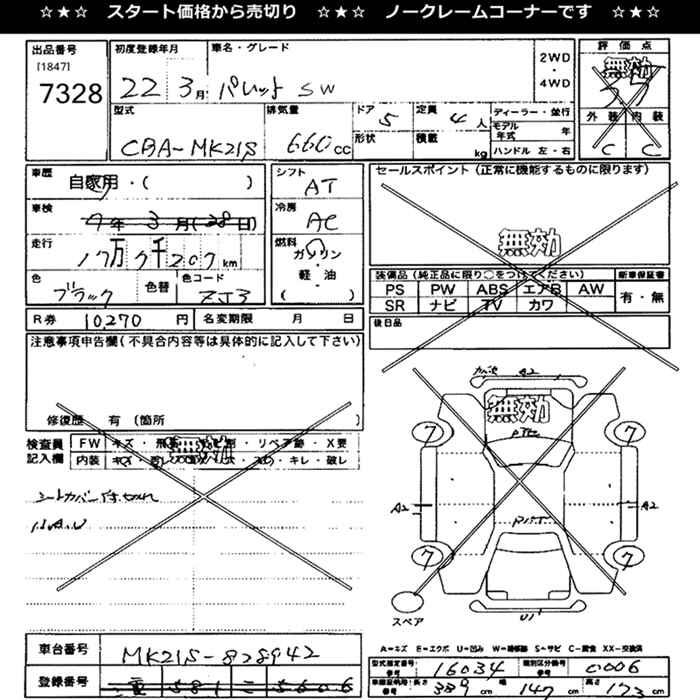 ☆★☆ スタート価格から売切り ☆★☆ ノークレームコーナーです ☆★☆
出品番号 初度登録年月 車名・グレード 2WD・4WD 評価点
[1847]
7328 22 3月 パレット SW 無効
型式 排気量 ドア 定員 ディーラー・並行 外装 内装
CBA-MK21S 660cc 5 4人 C C
形状 積載 kg モデル年式 年
ハンドル 左・右
車歴 自家用・( ) シフト AT セールスポイント(正常に機能するものに限ります)
車検 7年3月(28日) 冷房 AC
無効
走行 17万7千207km 燃料 ガソリン・軽・油 ( )
装備品(純正品に限り○をつけてください) 新車保証書
色 ブラック 色替 色コード ZJ3
PS PW ABS エアB AW 有・無
SR ナビ TV カワ
R券 10270円 名変期限 月 日 後日品
注意事項申告欄(不具合内容等は具体的に記入して下さい)
修復歴 有 (箇所 )
検査員記入欄 FW キズ・飛 ・リペア跡・X要
内装 ・キレ・破レ
無効
シートカバー
A2
無効
7 7
A2 A2
7 7
スペア
A=キズ E=エクボ U=凹み W=補修跡 S=サビ C=腐食 XX=交換済
車台番号 MK21S-828942
型式指定番号 参考 16034 類別区分番号 参考 0006
登録番号 581 5606
長さ 339cm 幅 147cm 高さ 173cm